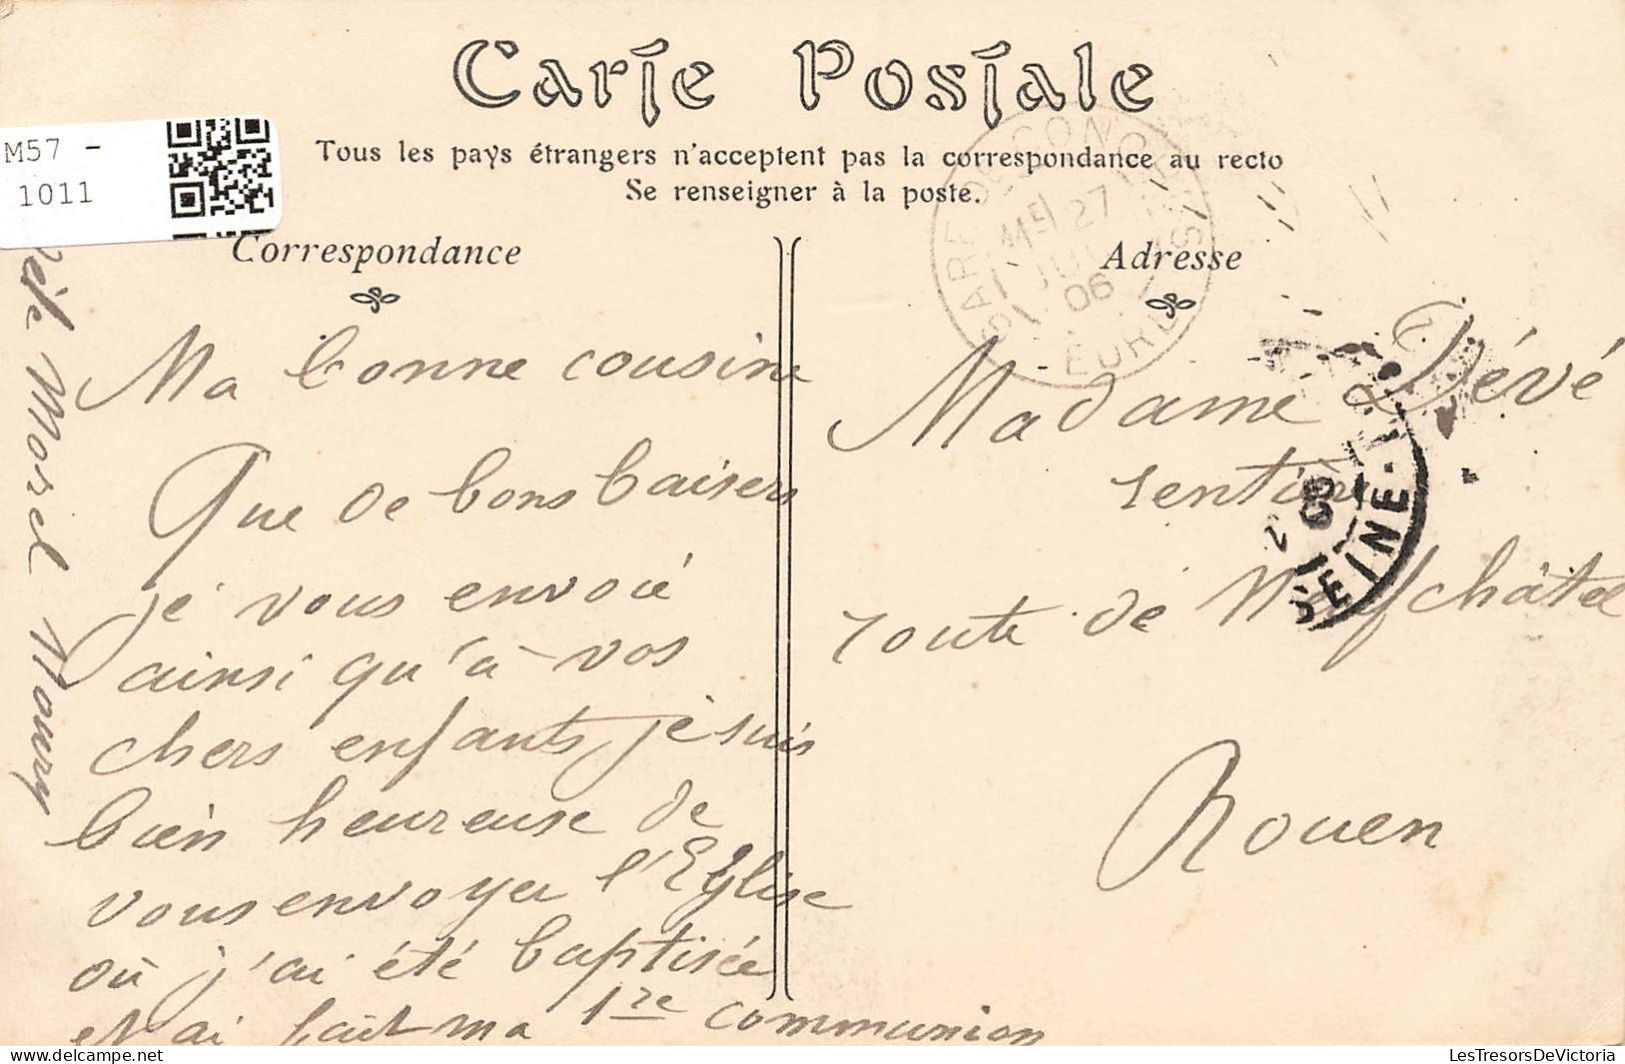 Carte Postale
Tous les pays étrangers n'acceptent pas la correspondance au recto
Se renseigner à la poste.
M57 -
1011
Correspondance
Ma bonne cousine
Que de bons baisers
je vous envoie
ainsi qu'à vos
chers enfants je suis
bien heureuse de
vous envoyer l'Eglise
où j'ai été baptisée
et ai fait ma 1re communion
Morel Noury
Adresse
Madame Dévé
sentier
route de Neufchâtel
Rouen
GARE DE CONCHES
ME 27
06
EURE
SEINE-I
06
LesTresorsDeVictoria